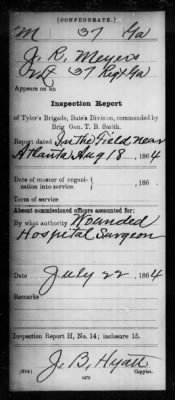 (CONFEDERATE.)
M 37 Ga
J. R. Meyers
Lt 37 Regt Ga
Appears on an
Inspection Report
of Tyler's Brigade, Bate's Division, commanded by
Brig. Gen. T. B. Smith.
Report dated In the Field near
Atlanta Aug 18, 1864
Date of muster or organization into service , 186 .
Term of service
Absent commissioned officers accounted for:
By what authority Wounded
Hospital Surgeon
Date July 22, 1864
Remarks
Inspection Report H, No. 14; inclosure 15.
J. B. Hyatt
Copyist.